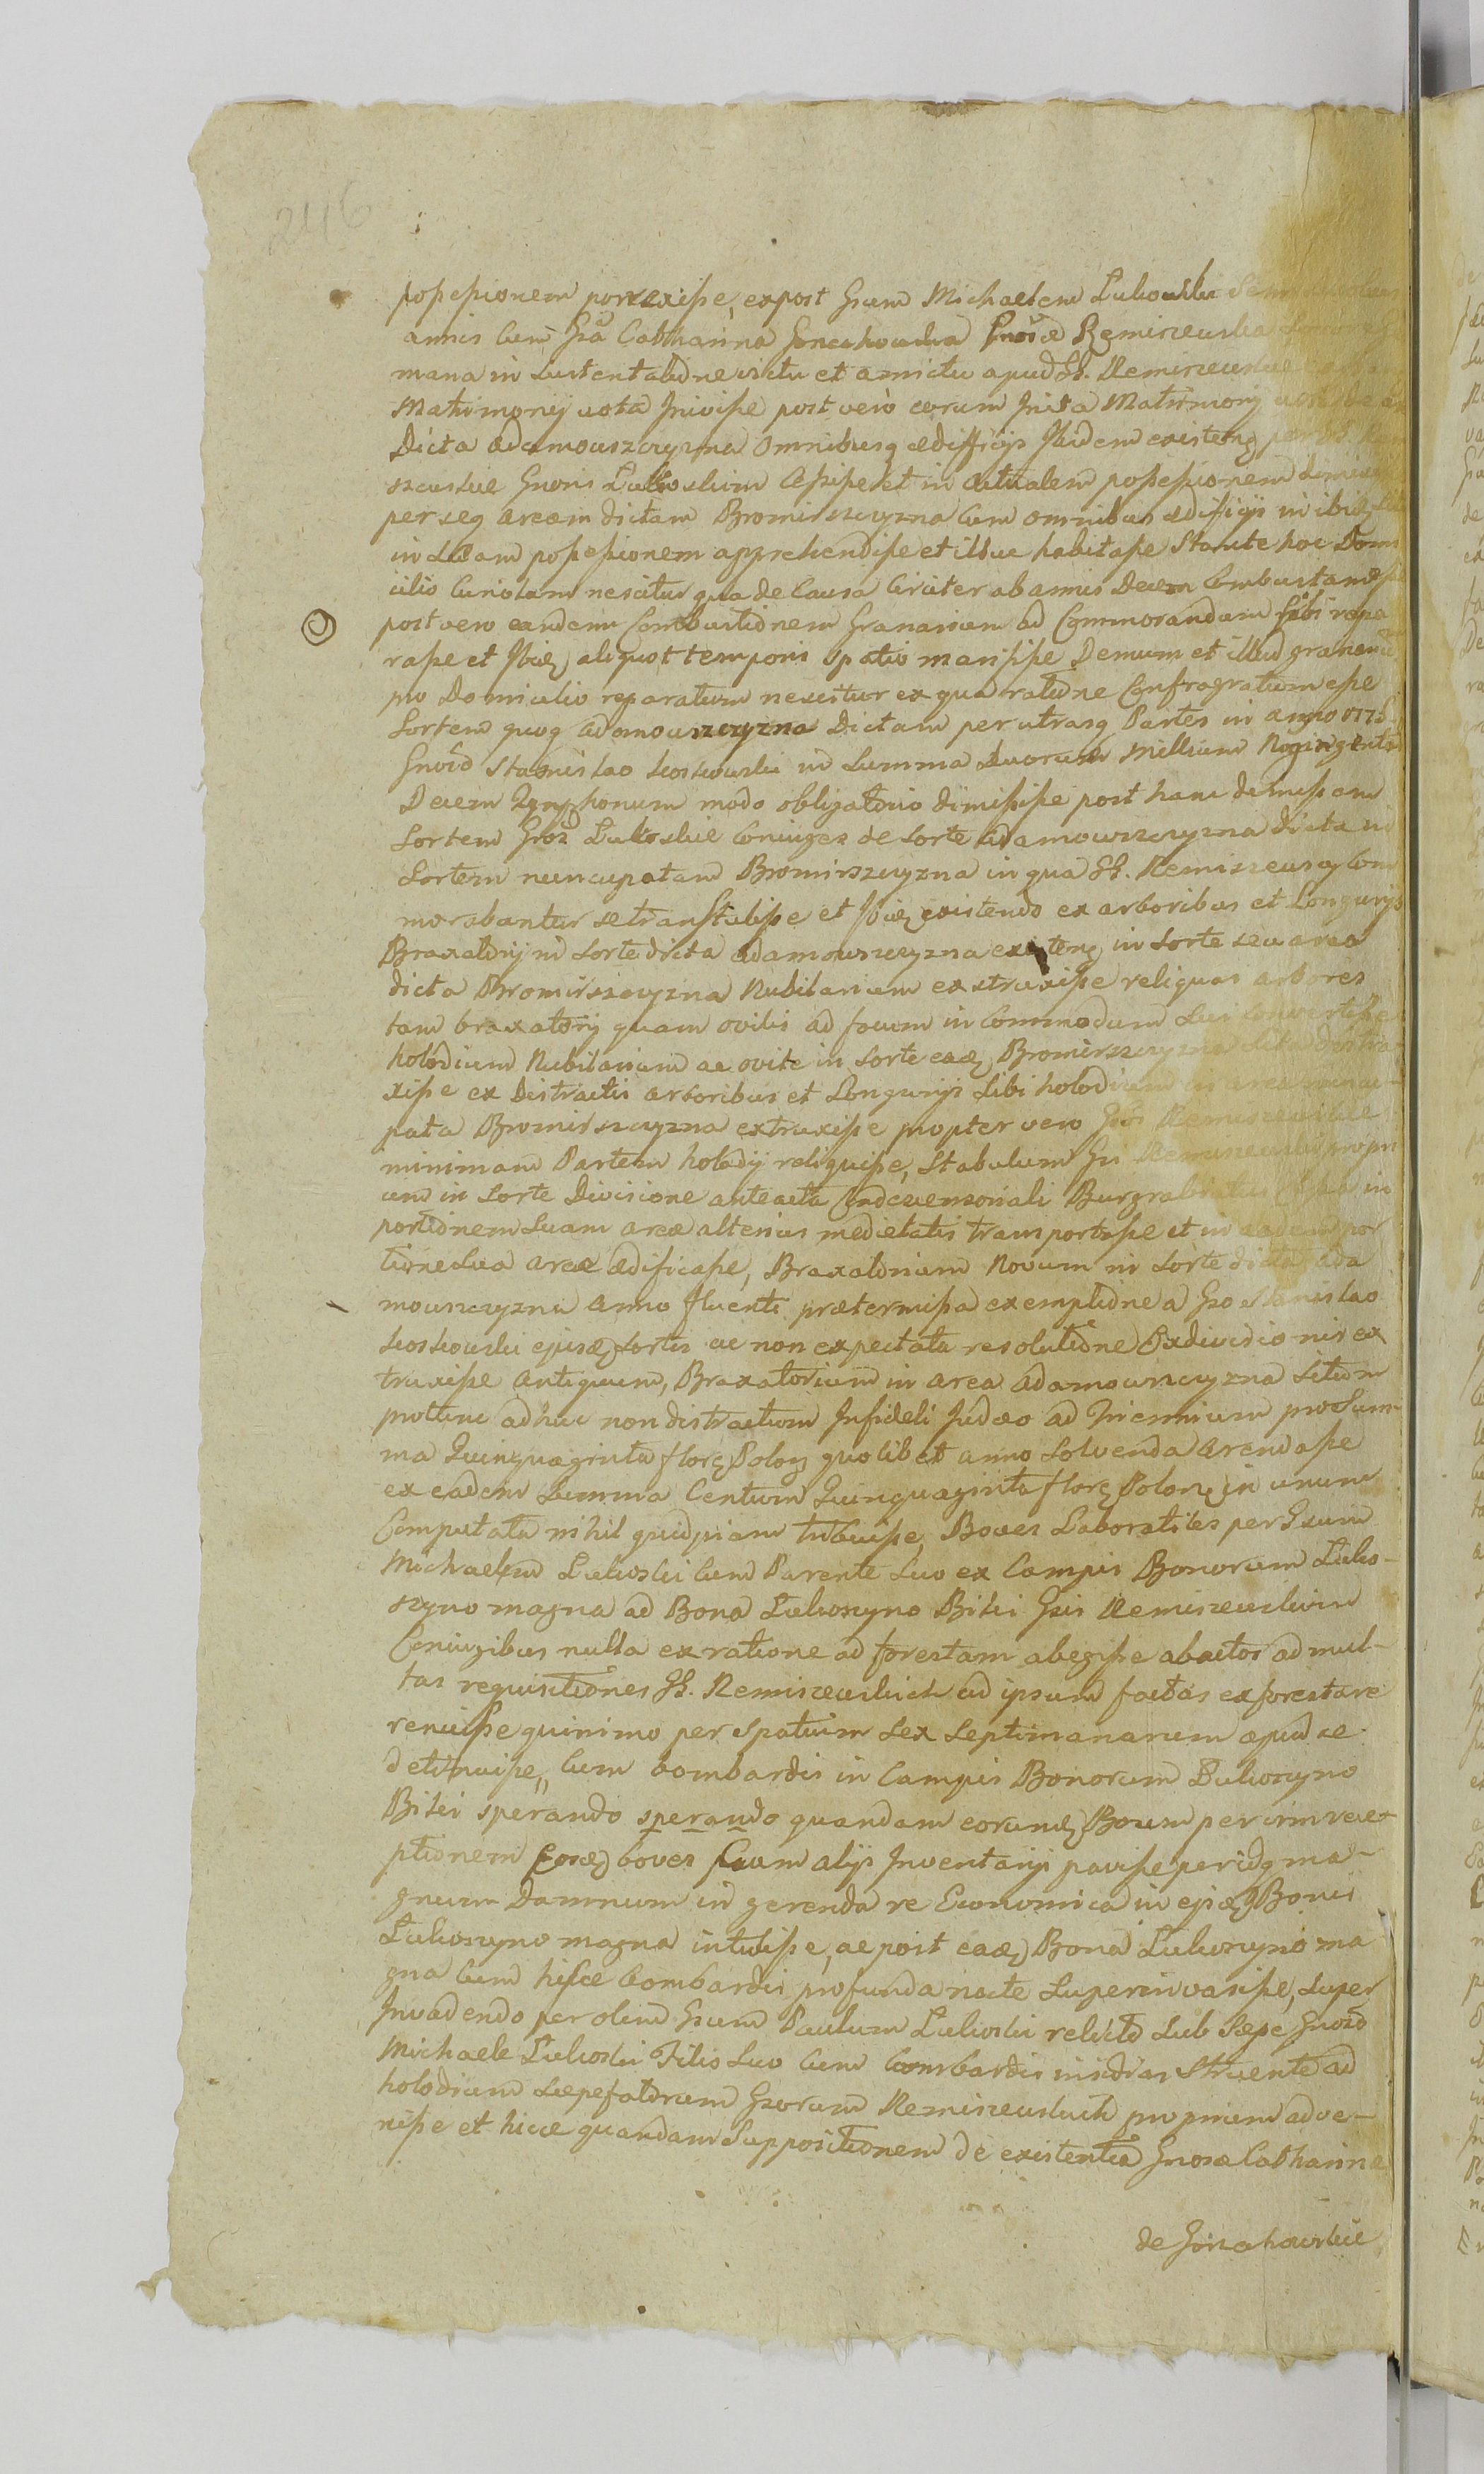 246
possessionem porrexisse, expost Gsum Michaelem Lukoski
annis cum Gsa Catharina Goncikowska Gnosæ Remiszewska
mana in sustentatione victu et amictu apud GG. Remiszewskie
Matrimonij vota Inivisse post verò eorum Inita Matrimonij
Dicta adamowszczyzna omnibusq ædifficijs Ibidem existenq
szewskie Gnoris Lukoskim Cessisse et in actualem possessionem
per seq aream dictam Bromirszczyzna cum omnibus ædificijs in ibidq
in suam possessionem apprehendisse et illuc habitasse stante hoc Domi
cilio Curiolam nescitur qua de Causa Circiter ab annis Decem Combustam
post vero eandem Combustionem Granarium ad Commorandum sibi repa
rasse et Ibidq aliquot temporis spatio mansisse Demum et illud granariu
pro Domicilio reparatum nescitur ex qua ratione Conflagratum esse
Sortem quoq adamowszczyzna Dictam per utrasq Partes in anno 177
Gnoso Stanislao Koskowski in summa duorum Millium Nogingento
Decem Tynphonum modo obligatorio dimisisse post hanc dimissam
Sortem Gros Lukoskie Coniuges de sorte adamowszczyzna dicta in
Sortem nuncupatam Bromirszczyzna in qua GG. Remiszewscy Com
morabantur se transtulisse et Ibidq existendo ex arboribus et Longurijs
Braxatorij in sorte dicta adamowszczyzna existenq in sorte seu area
dicta Bromirszczyzna Nubilarium exstruxisse reliquas arbores
tam braxatorij quam ovilis ad focum in Commodum sui convertisse
holodium Nubilarium ac ovile in sorte eadq Bromirszczyzna
xisse ex Distractis arboribus et Longurijs sibi holodium in area nuncu-
pata Bromirszczyzna extruxisse propter vero Gsos Remiszewskie
minimam Partem holodij reliquisse, Stabulum Gsi Remiszewski propri
um in sorte Divisione anteacta Condescensoriali Burgrabiatus in
portionem suam areæ alterius medietatis transportasse et in eadem por
tione sua areæ ædificasse, Braxatorium Novum in sorte dicta ada
mowszczyzna anno fluenti prætermissa exemptione a Gso Stanislao
Koskowski ejusdq sortis ac non expectata resolutione Exdivisionis ex
truxisse antiquum, Braxatorium in area adamowszczyzna situm
protunc adhuc non distractum Infideli Judæo ad Triennium pro sum
ma Quinquaginta florq Polonq quolibet anno solvenda arendasse
ex eadem summa Centum Quinquaginta florq Polonq in unum
Computata nihil quidpiam tribuisse, Boves Laboratiles per Gsum
Michaelem Lukoski cum Parente suo ex Campis Bonorum Luko-
szyno magna ad Bona Lukoszyno Biki Gsis Remiszewskim
Coniugibus nulla ex ratione ad forestam abegisse abactos ad mul-
tas requisitiones GG. Remiszewskich ad ipsum factas exforestare
renuisse quinimo per spatium sex septimanarum apud se
detinuisse, Cum bombardis in Campis Bonorum Lukoszyno
Biki sperando sperando quandam eorundq Boum per eum rece-
ptionem Eosdq boves cum alijs Inventarijs pavisse per idq ma-
gnum Damnum in gerenda re Economica in ejisdq Bonis
Lukoszyno magna intulisse, ac post eadq Bona Lukoszyno ma
gna cum hisce bombardis profunda nocte superinvasisse, super
Invadendo per olim Gsum Paulum Lukoski relicto sub sæpe Gnoso
Michaele Lukoski Filio suo cum bombardis insidias struente ad
holodium sæpefatorum Gsorum Remiszewskich proprium adve-
nisse et hicce quandam suppositionem de existentia Gnosæ Catharinæ
de Gonczikowskie